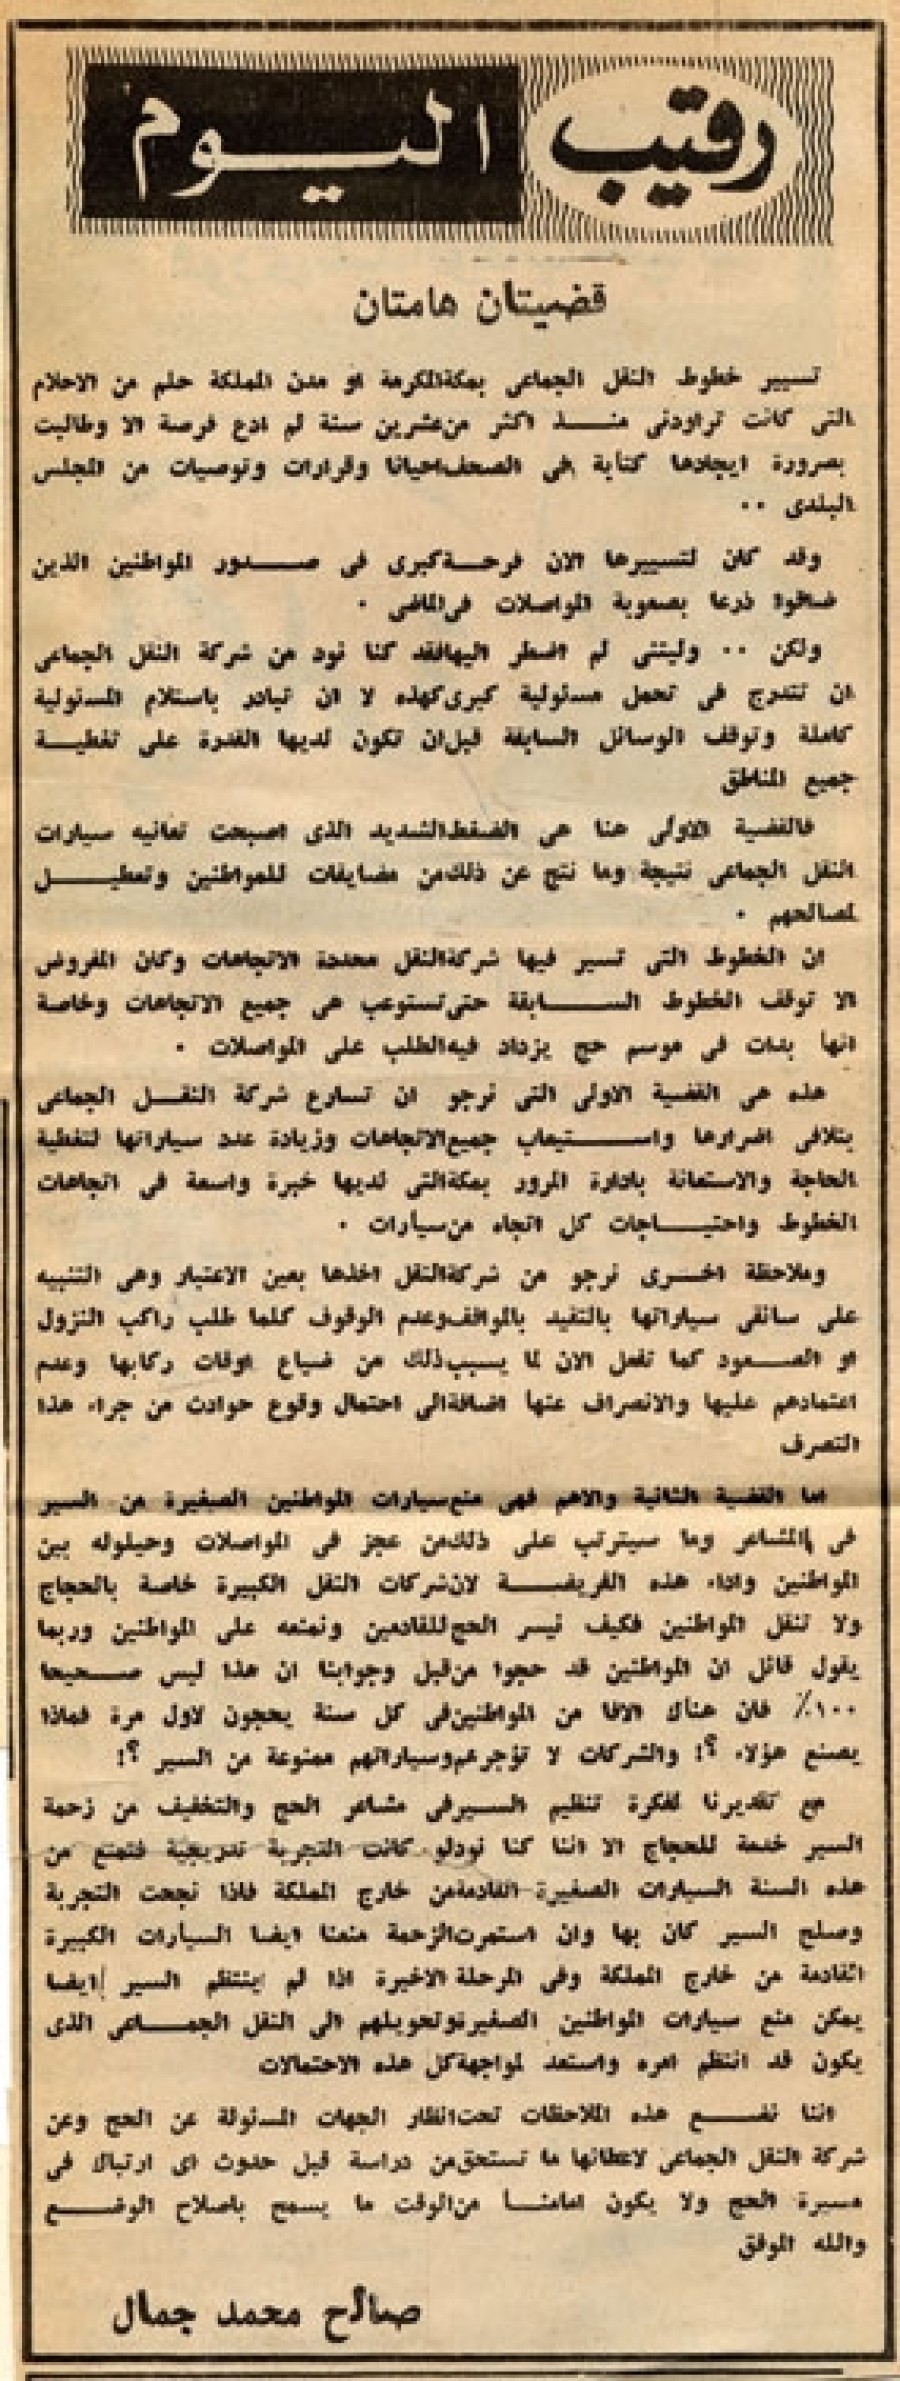 رقيب اليوم
قضيتان هامتان
تسيير خطوط النقل الجماعى بمكة المكرمة او مدن المملكة حلم من الاحلام
التى كانت تراودنى منــذ اكثر من عشرين سنة لم ادع فرصة الا وطالبت
بضرورة ايجادها كتابة فى الصحف احيانا وقرارات وتوصيات من المجلس
البلدى ..
وقد كان لتسييرها الان فرحــة كبرى فى صــدور المواطنين الذين
ضاقوا ذرعا بصعوبة المواصلات فى الماضى .
ولكن .. وليتنى لم اضطر اليها فقد كنا نود من شركة النقل الجماعى
ان تتدرج فى تحمل مسئولية كبرى كهذه لا ان تبادر باستلام المسئولية
كاملة وتوقف الوسائل السابقة قبل ان تكون لديها القدرة على تغطيــة
جميع المناطق
فالقضية الاولى هنا هى الضغط الشديد الذى اصبحت تعانيه سيارات
النقل الجماعى نتيجة وما نتج عن ذلك من مضايقات للمواطنين وتعطيــل
لمصالحهم .
ان الخطوط التى تسير فيها شركة النقل محددة الاتجاهات وكان المفروض
الا توقف الخطوط الســابقة حتى تستوعب هى جميع الاتجاهات وخاصة
انها بدات فى موسم حج يزداد فيه الطلب على المواصلات .
هذه هى القضية الاولى التى نرجو ان تسارع شركة النقــل الجماعى
بتلافى اضرارها واســتيعاب جميع الاتجاهات وزيادة عدد سياراتها لتغطية
الحاجة والاستعانة بادارة المرور بمكة التى لديها خبرة واسعة فى اتجاهات
الخطوط واحتيــاجات كل اتجاه من سيارات .
وملاحظة اخــرى نرجو من شركة النقل اخذها بعين الاعتبار وهى التنبيه
على سائقى سياراتها بالتقيد بالمواقف وعدم الوقوف كلما طلب راكب النزول
او الصــعود كما تفعل الان لما يسبب ذلك من ضياع اوقات ركابها وعدم
اعتمادهم عليها والانصراف عنها اضافة الى احتمال وقوع حوادث من جراء هذا
التصرف
اما القضية الثانية والاهم فهى منع سيارات المواطنين الصغيرة من السير
فى المشاعر وما سيترتب على ذلك من عجز فى المواصلات وحيلوله بين
المواطنين واداء هذه الفريضــة لان شركات النقل الكبيرة خاصة بالحجاج
ولا تنقل المواطنين فكيف نيسر الحج للقادمين ونمنعه على المواطنين وربما
يقول قائل ان المواطنين قد حجوا من قبل وجوابنا ان هذا ليس صــحيحا
١٠٠٪ فان هناك الافا من المواطنين فى كل سنة يحجون لاول مرة فماذا
يصنع هؤلاء ؟! والشركات لا تؤجرهم وسياراتهم ممنوعة من السير ؟!
مع تقديرنا لفكرة تنظيم الســير فى مشاعر الحج والتخفيف من زحمة
السير خدمة للحجاج الا اننا كنا نود لو كانت التجربة تدريجية فتمنع من
هذه السنة السيارات الصغيرة القادمة من خارج المملكة فاذا نجحت التجربة
وصلح السير كان بها وان استمرت الزحمة منعنا ايضا السيارات الكبيرة
القادمة من خارج المملكة وفى المرحلة الاخيرة اذا لم ينتظم السير ايضا
يمكن منع سيارات المواطنين الصغيرة وتحويلهم الى النقل الجمــاعى الذى
يكون قد انتظم امره واستعد لمواجهة كل هذه الاحتمالات
اننا نضــع هذه الملاحظات تحت انظار الجهات المسئولة عن الحج وعن
شركة النقل الجماعى لاعطائها ما تستحق من دراسة قبل حدوث اى ارتباك فى
مسيرة الحج ولا يكون امامنــا من الوقت ما يسمح باصلاح الوضــع
والله الموفق
صالح محمد جمال